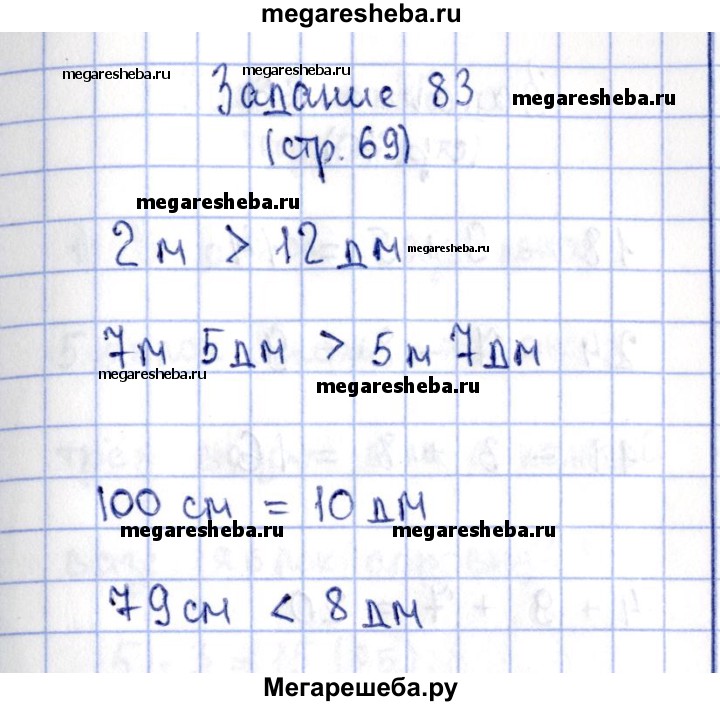 megaresheba.ru
megaresheba.ru megaresheba.ru
Задание 83 megaresheba.ru
(стр. 69)
megaresheba.ru
2 м > 12 дм megaresheba.ru
7 м 5 дм > 5 м 7 дм
megaresheba.ru megaresheba.ru
100 см = 10 дм
megaresheba.ru megaresheba.ru
79 см < 8 дм
Мегарешеба.ру